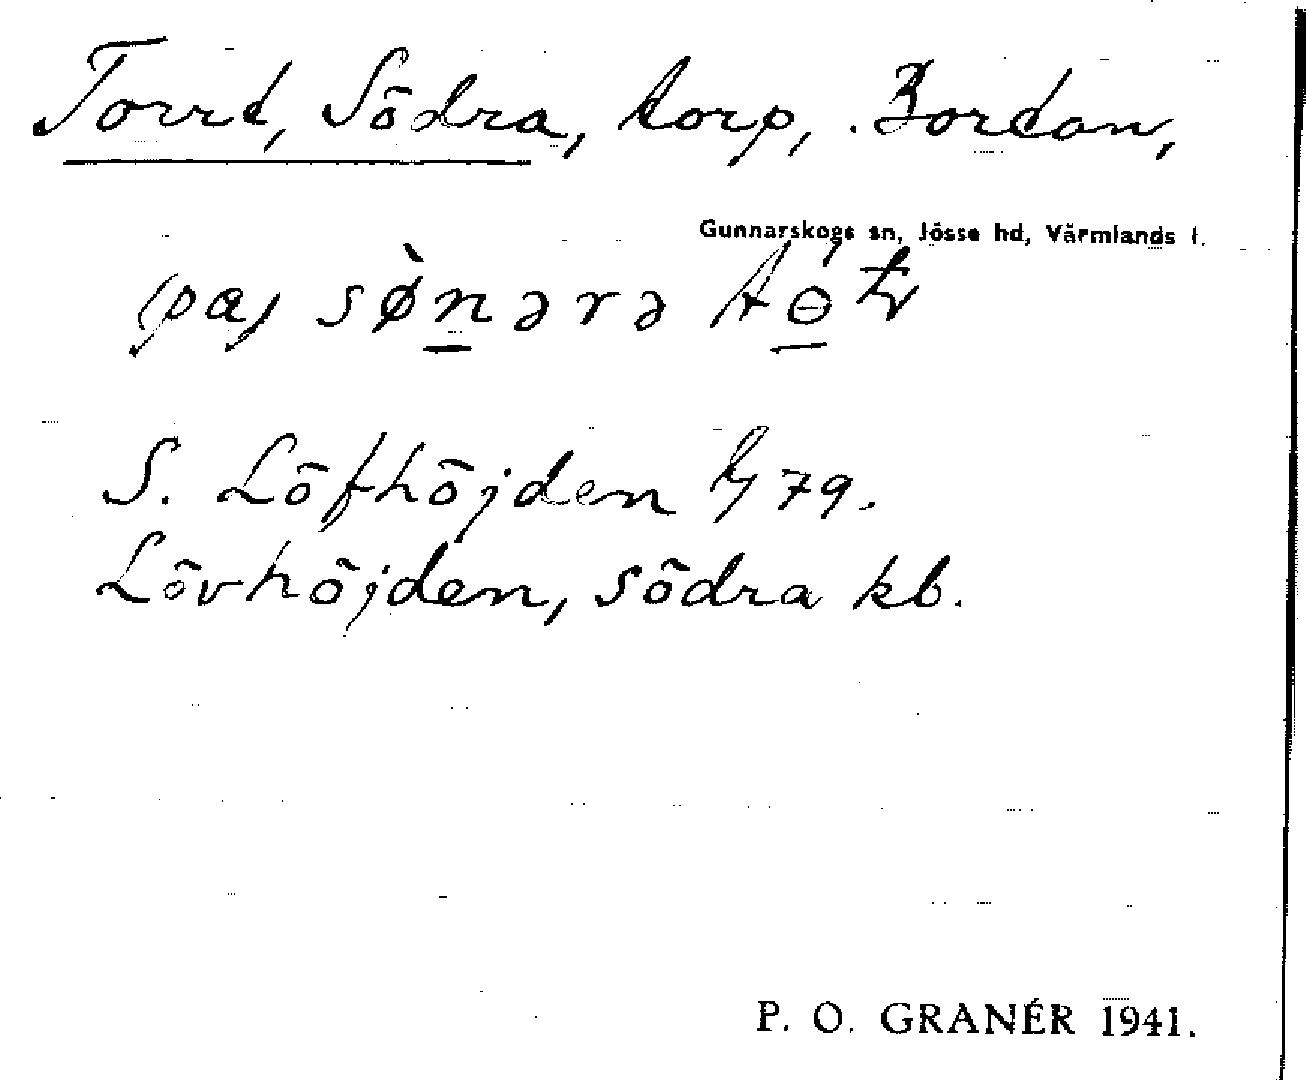 Torrt, Södra, torp, Bortan,
Gunnarskogs sn, Jösse hd, Värmlands l.
(pa) sø̀nərə
S. Löfhöjden by 79.
Lövhöjden, södra kb.
P. O. GRANÉR 1941.